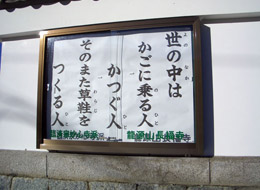 世の中は
かごに乗る人
かつぐ人
そのまた草鞋を
つくる人
龍源山長福寺